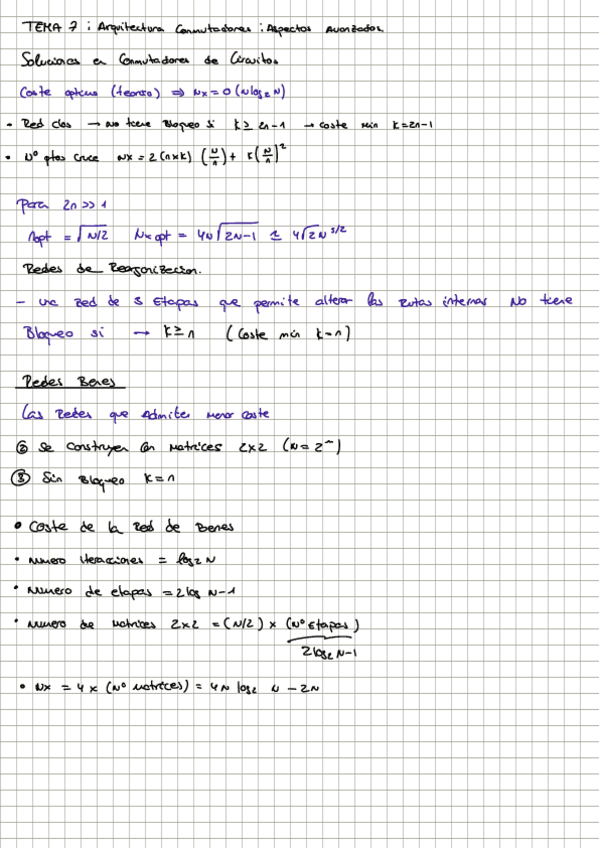 TEMA 7 : Arquitectura Conmutadores : Aspectos Avanzados.
Soluciones en Conmutadores de Circuitos
Coste optimo (teorico) ⇒ Nx = O (N log₂ N)
- Red clos → No tiene Bloqueo si k ≥ 2n-1 → coste min k=2n-1
• Nº ptos cruce Nx = 2 (n×k) (N/n) + k(N/n)²
Para 2n >> 1
nopt = √N/2 Nx opt = 4N√2N-1 ≃ 4√2 N^3/2
Redes de Reorganizacion.
- una Red de 3 Etapas que permite alterar las Rutas internas No tiene
Bloqueo si → k ≥ n (Coste min k=n)
Redes Benes
Las Redes que Admiten menor coste
② Se construyen con Matrices 2x2 (N=2^m)
③ Sin Bloqueo k=n
• Coste de la Red de Benes
• numero iteraciones = log₂ N
• Numero de etapas = 2 log N-1
• Numero de Matrices 2x2 = (N/2) x (Nº Etapas)
2 log₂ N-1
• Nx = 4 x (Nº Matrices) = 4N log₂ N - 2N